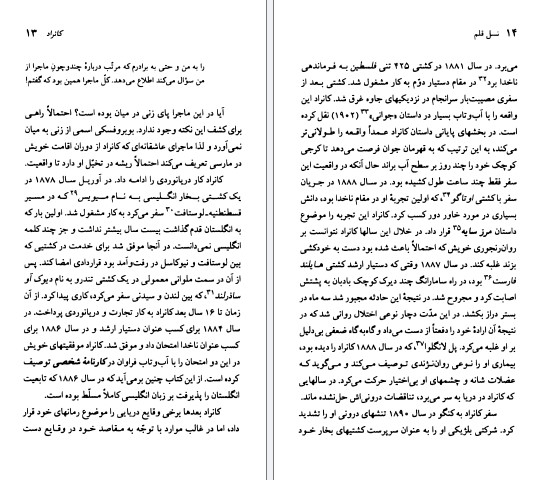 کانراد ۱۳
را به من و حتی به برادرم که مرتّب دربارهٔ چندوچون ماجرا از
من سؤال می‌کند اطلاع می‌دهد. کلّ ماجرا همین بود که گفتم!
آیا در این ماجرا پای زنی در میان بوده است؟ احتمالاً راهی
برای کشف این نکته وجود ندارد. بوبروفسکی اسمی از زنی به میان
نمی‌آورد و لذا ماجرای عاشقانه‌ای که کانراد از دوران اقامت خویش
در مارسی تعریف می‌کند احتمالاً ریشه در تخیّل او دارد تا واقعیت.
کانراد کار دریانوردی را ادامه داد. در آوریـل سـال ۱۸۷۸ در
یک کشتـی بـخار انگـلیـسی بـه نـام مـیویس۲۹ کـه در مـسیر
قسطنطنیه-لوستافت۳۰ سفر می‌کرد به کار مشغول شد. اولین بار که
به انگلستان قدم گذاشت بیست سال بیشتر نداشت و جز چند کلمه
انگلیسی نمی‌دانست. در آنجا موفق شد برای خدمت در کشتیی که
بین لوستافت و نیوکاسل در رفت‌وآمد بود قراردادی امضا کند. پس
از آن در سمت ملوانی معمولی در یک کشتی تندرو به نام دیوک آو
ساذرلند۳۱، که بین لندن و سیدنی سفر می‌کرد، کاری پیدا کرد. از آن
زمان تا ۱۶ سال بعد کانراد به کار تجارت و دریانوردی پرداخت. در
سال ۱۸۸۴ برای کسب عنوان دستیار ارشد و در سال ۱۸۸۶ برای
کسب عنوان ناخدا امتحان داد و موفق شد. کانراد موفقیتهای خویش
در این دو امتحان را با آب‌وتاب فراوان در کارنامهٔ شخصی توصیف
کرده است. از این کتاب چنین برمی‌آید که در سال ۱۸۸۶ که تابعیت
انگلستان را پذیرفت بر زبان انگلیسی کاملاً مسلّط بوده است.
کانراد بعدها برخی وقایع دریایی را موضوع رمانهای خود قرار
داد، اما در غالب موارد با توجّه به مـقاصد خـود در وقایع دست
۱۴ نسل قلم
می‌برد. در سال ۱۸۸۱ در کشتی ۴۲۵ تنی فلسطین به فرماندهی
ناخدا برد۳۲ در مقام دستیار دوّم به کار مشغول شد. کشتی بعد از
سفری مصیبت‌بار سرانجام در نزدیکیهای جاوه غرق شد. کانراد این
واقعه را با آب‌وتاب بسیار در داستان «جوانی»۳۳ (۱۹۰۲) نقل کرده
است. در بخشهای پایانی داستان کانراد عـمداً واقعه را طـولانی‌تر
می‌کند، به این ترتیب که به قهرمان جوان فرصت می‌دهد تا کرجی
کوچک خود را چند روز بر سطح آب براند حال آنکه در واقعیت این
سفر فقط چند ساعت طول کشیده بود. در سال ۱۸۸۸ در جـریان
سفر با کشتی اوتاگو۳۴، که اولین تجربهٔ او در مقام ناخدا بود، دانش
بسیاری در مورد خاور دور کسب کرد. کانراد این تجربه را موضوع
داستان مرز سایه۳۵ قرار داد. در خلال این سالها کانراد نتوانست بر
روان‌رنجوری خویش که احتمالاً باعث شده بود دست به خودکشی
بزند غلبه کند. در سال ۱۸۸۷ وقتی که دستیار ارشد کشتی هایلند
فارست۳۶ بود، در راه سامارانگ چند دیرک کوچک بادبان به پشتش
اصابت کرد و مجروح شد. در نتیجهٔ این حادثه مجبور شد سه ماه در
بستر دراز بکشد. در این مدّت دچار نوعی اختلال روانی شد که در
نتیجهٔ آن ارادهٔ خود را دفعتاً از دست می‌داد و گاه‌به‌گاه ضعفی بی‌دلیل
بر او غلبه می‌کرد. پل لانگلوا۳۷، که در سال ۱۸۸۸ کانراد را دیده بود،
بیماری او را نوعی روان‌نژندی تـوصیف می‌کند و می‌گوید کـه
عضلات شانه و چشمهای او بی‌اختیار حرکت می‌کرد. در سالهایی
که کانراد در دریا به سر می‌برد، تناقضات درونی‌اش حل‌نشده ماند.
سفر کانراد به کنگو در سال ۱۸۹۰ تنشهای درونی او را تشدید
کرد. شرکتی بلژیکی او را به عنوان سرپرست کشتیهای بخار خـود